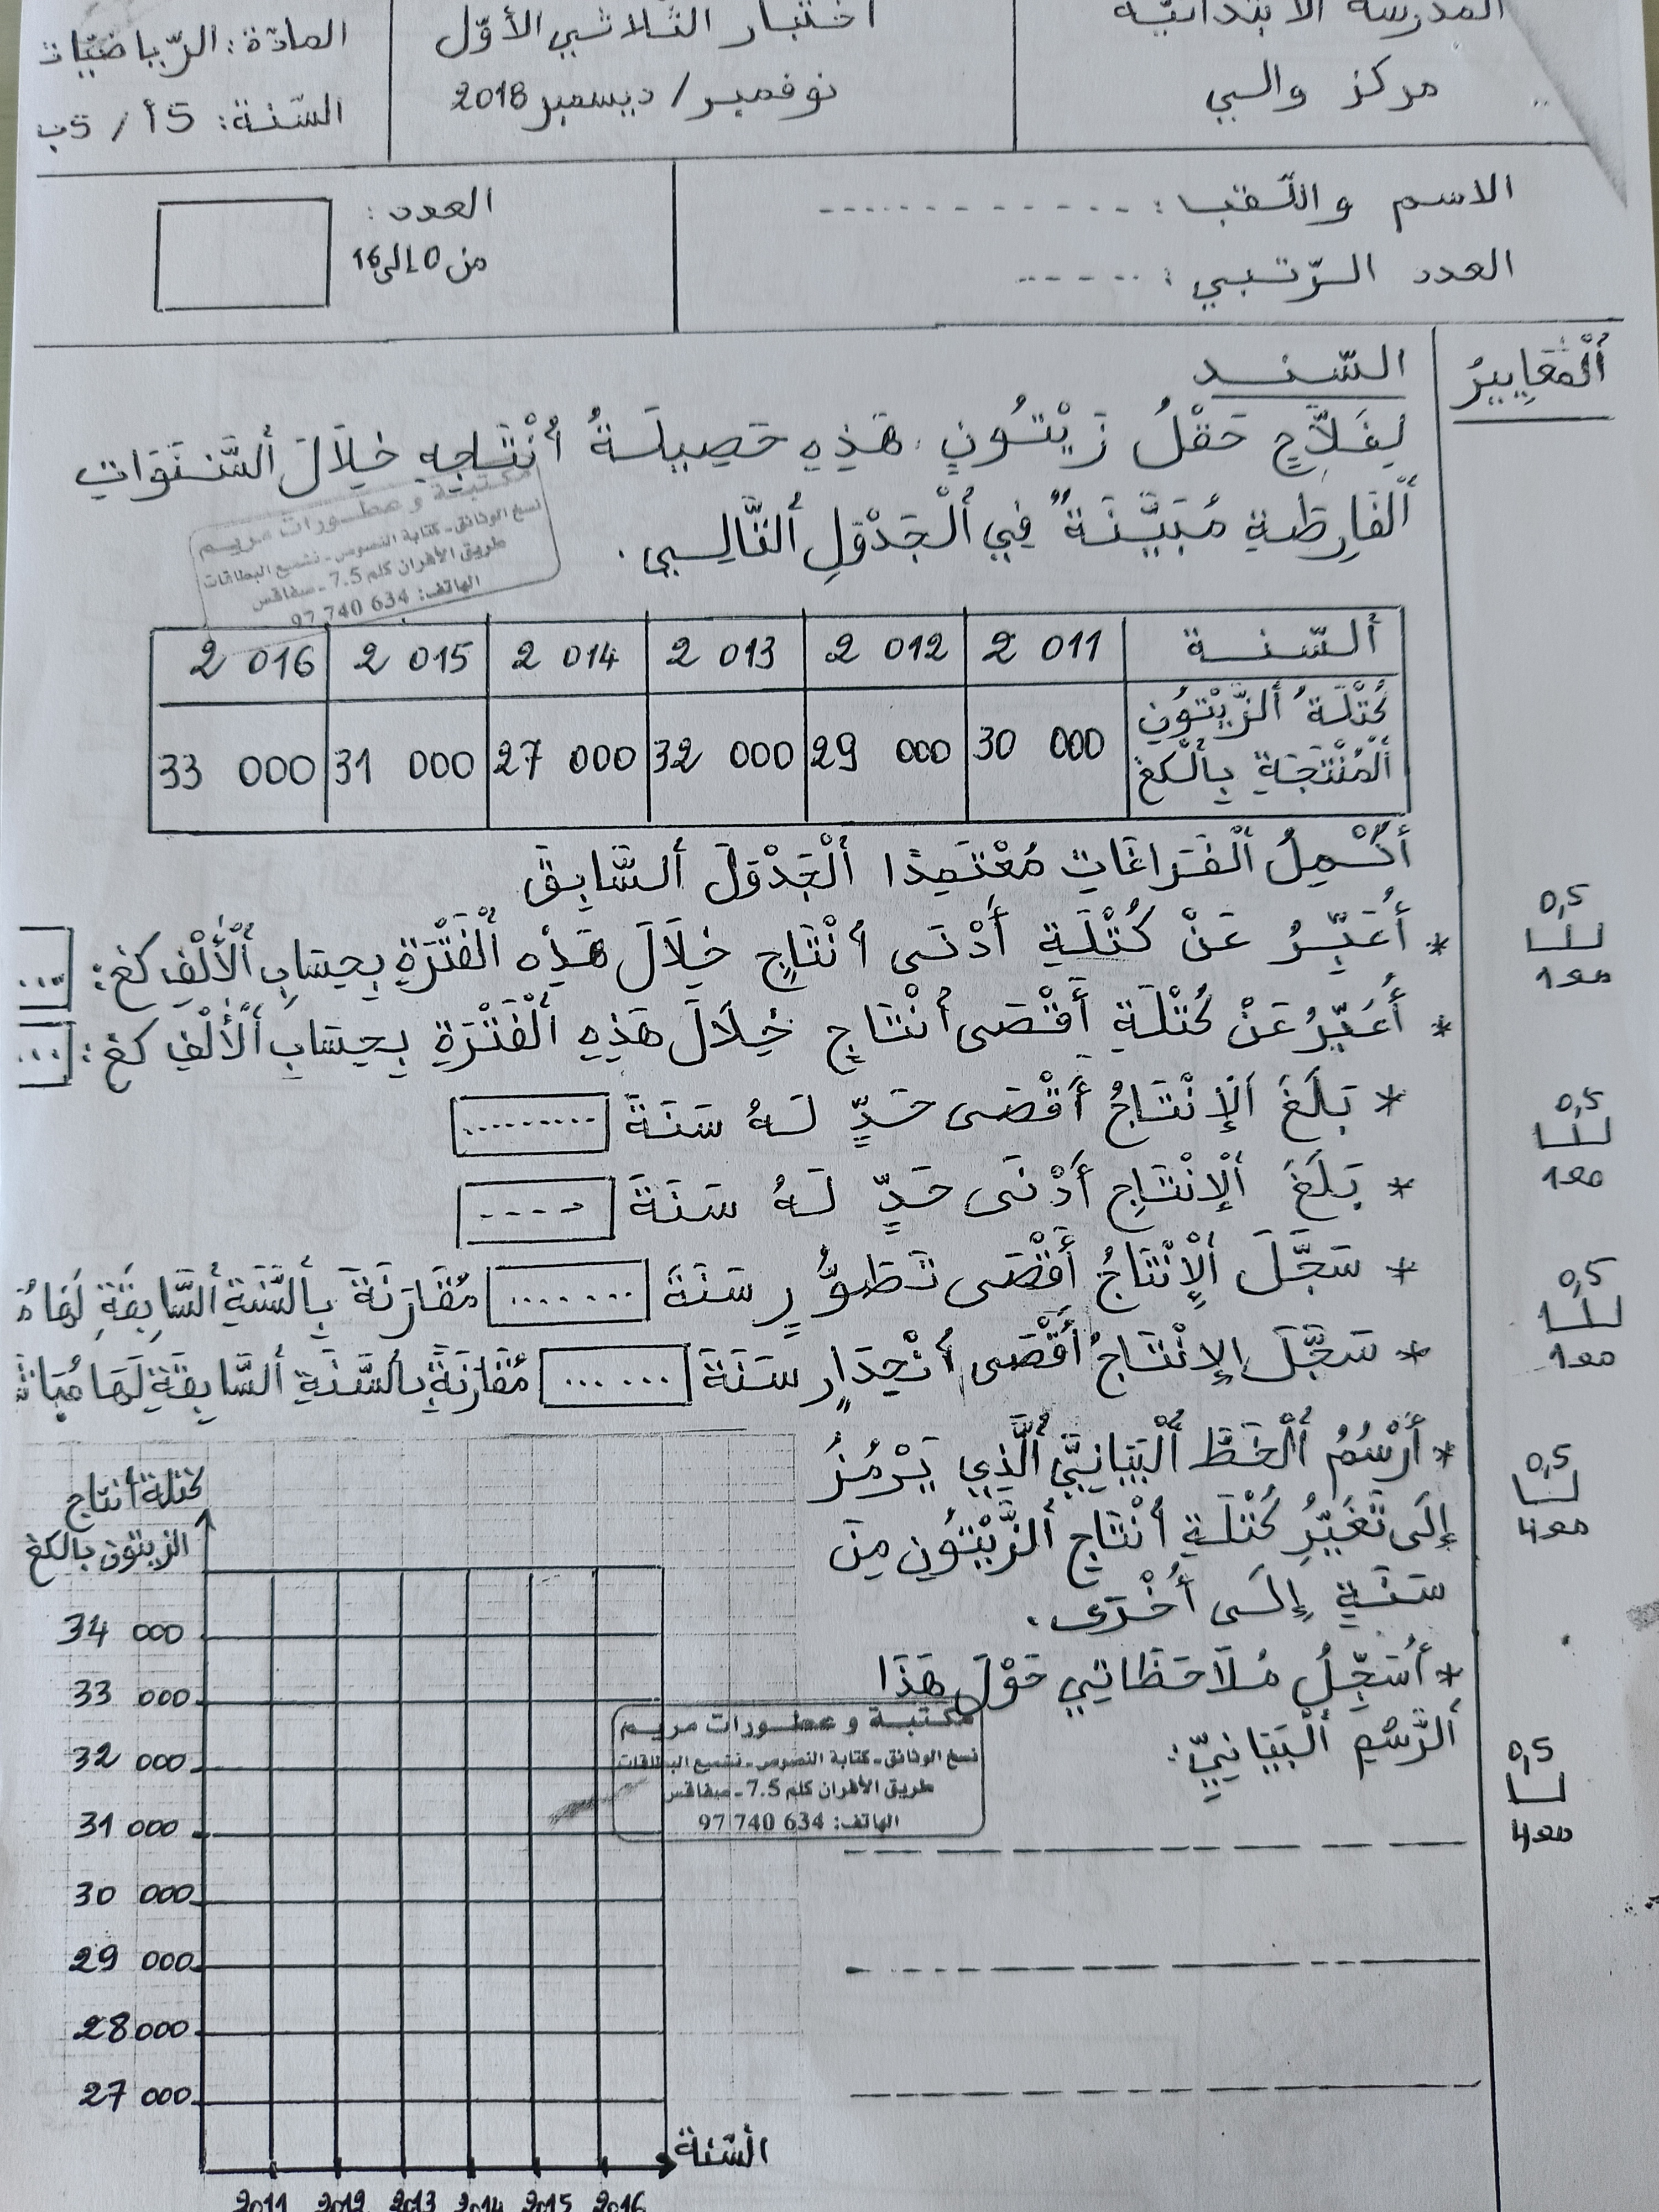 المدرسة الابتدائية
مركز والي
اختبار الثلاثي الأوّل
نوفمبر / ديسمبر 2018
المادّة: الرّياضيّات
السّنة: 5أ / 5ب
الاسم واللّقب: ............
العدد الرّتبي: .....
العدد:
من 10 إلى 16
المعايير
السّند
لِفَلاَّحٍ حَقْلُ زَيْتُونٍ. هَذِهِ حَصِيلَةُ إنْتَاجِهِ خِلَالَ السَّنَوَاتِ
الْفَارِطَةِ مُبَيَّنَةٌ فِي الْجَدْوَلِ التَّالِي.
مكتبة و عطورات مريم
نسخ الوثائق - كتابة النصوص - تشميع البطاقات
طريق الأفران كلم 7.5 - صفاقس
الهاتف: 634 740 97
السّنة 2 011 2 012 2 013 2 014 2 015 2 016
كُتْلَةُ الزَّيْتُونِ الْمُنْتَجَةِ بِالْكغ 30 000 29 000 32 000 27 000 31 000 33 000
أُكْمِلُ الْفَرَاغَاتِ مُعْتَمِدًا الْجَدْوَلَ السَّابِقَ
* أُعَبِّرُ عَنْ كُتْلَةِ أَدْنَى إنْتَاجٍ خِلَالَ هَذِهِ الْفَتْرَةِ بِحِسَابِ الْأَلْفِ كغ: ...
0,5
مع1
* أُعَبِّرُ عَنْ كُتْلَةِ أَقْصَى إنْتَاجٍ خِلَالَ هَذِهِ الْفَتْرَةِ بِحِسَابِ الْأَلْفِ كغ: ...
* بَلَغَ الْإِنْتَاجُ أَقْصَى حَدٍّ لَهُ سَنَةَ .........
0,5
مع1
* بَلَغَ الْإِنْتَاجِ أَدْنَى حَدٍّ لَهُ سَنَةَ ....
* سَجَّلَ الْإِنْتَاجُ أَقْصَى تَطَوُّرٍ سَنَةَ ....... مُقَارَنَةً بِالسَّنَةِ السَّابِقَةِ لَهَا
0,5
مع1
* سَجَّلَ الإِنْتَاجُ أَقْصَى إنْحِدَارٍ سَنَةَ ...... مُقَارَنَةً بِالسَّنَةِ السَّابِقَةِ لَهَا
* أَرْسُمُ الْخَطَّ الْبَيَانِيَّ الَّذِي يَرْمُزُ
إِلَى تَغَيُّرِ كُتْلَةِ إنْتَاجِ الزَّيْتُونِ مِنَ
سَنَةٍ إِلَى أُخْرَى.
0,5
مع4
* أُسَجِّلُ مُلَاحَظَاتِي حَوْلَ هَذَا
الرَّسْمِ الْبَيَانِيِّ:
0,5
مع4
كتلة إنتاج
الزيتون بالكغ
34 000
33 000
32 000
31 000
30 000
29 000
28 000
27 000
السّنة
2011 2012 2013 2014 2015 2016
مكتبة و عطورات مريم
نسخ الوثائق - كتابة النصوص - تشميع البطاقات
طريق الأفران كلم 7.5 - صفاقس
الهاتف: 634 740 97